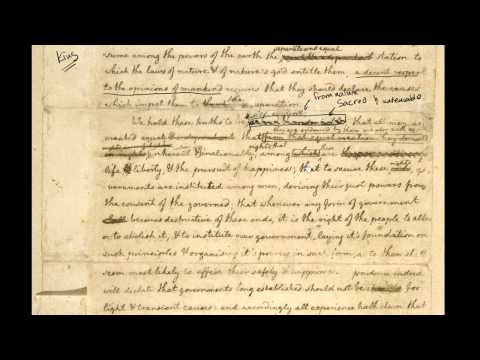 King
separate and equal
sume among the powers of the earth the station to
which the laws of nature & of nature's god entitle them, a decent respect
to the opinions of mankind requires that they should declare the causes
which impel them to the separation.
from nature
Sacred & undeniable
We hold these truths to be self evident that all men are
created equal that
rights that
inherent & inalienable, among which are
life & liberty, & the pursuit of happiness; that to secure these rights
vernments are instituted among men, deriving their just powers from
the consent of the governed; that whenever any form of government
becomes destructive of these ends, it is the right of the people to alter
or to abolish it, & to institute new government, laying it's foundation on
such principles & organising it's powers in such form, as to them sh
seem most likely to effect their safety & happiness. prudence indeed
will dictate that governments long established should not be for
light & transient causes: and accordingly all experience hath shewn that